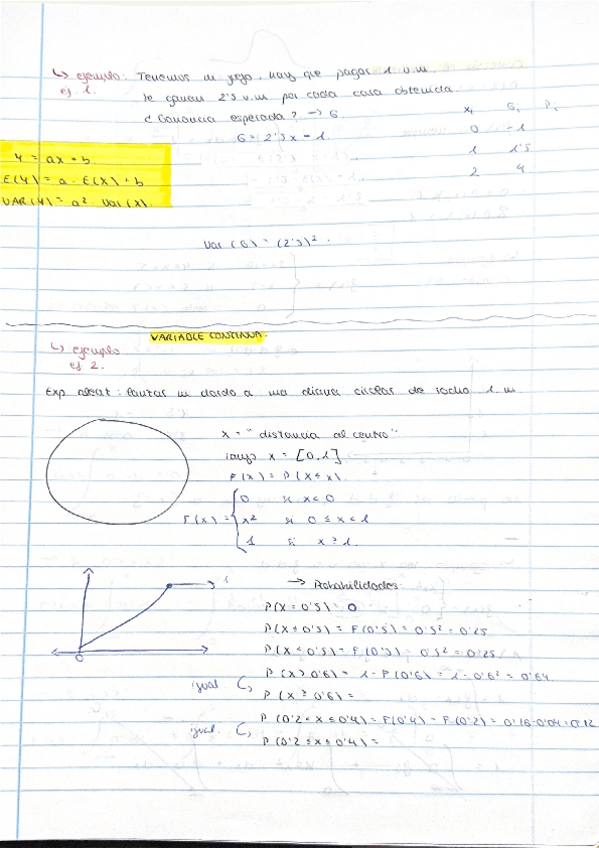 ↳ ejemplo: Tenemos un juego, hay que pagar 1 u.m.
ej 1. te ganan 2'5 u.m por cada cara obtenida.
¿Ganancia esperada? → G
G = 2'5x - 1
xi Gi Pi
0 -1
1 1'5
2 4
Y = ax + b
E(Y) = a · E(X) + b
VAR(Y) = a² · Var(X)
Var(G) = (2'5)² ·
VARIABLE CONTINUA.
↳ ejemplo
ej 2.
Exp. aleat: lanzar un dardo a una diana circular de radio 1 m
X = "distancia al centro"
rango x = [0,1]
F(x) = P(X ≤ x)
F(x) = { 0 si x < 0
x² si 0 ≤ x < 1
1 si x ≥ 1
1
0
→ Probabilidades:
P(X = 0'5) = 0
P(X ≤ 0'5) = F(0'5) = 0'5² = 0'25
P(X < 0'5) = F(0'5) = 0'5² = 0'25
P(X > 0'6) = 1 - F(0'6) = 1 - 0'6² = 0'64
igual. P(X ≥ 0'6) =
P(0'2 < X ≤ 0'4) = F(0'4) - F(0'2) = 0'16 - 0'04 = 0'12
igual. P(0'2 ≤ X ≤ 0'4) =